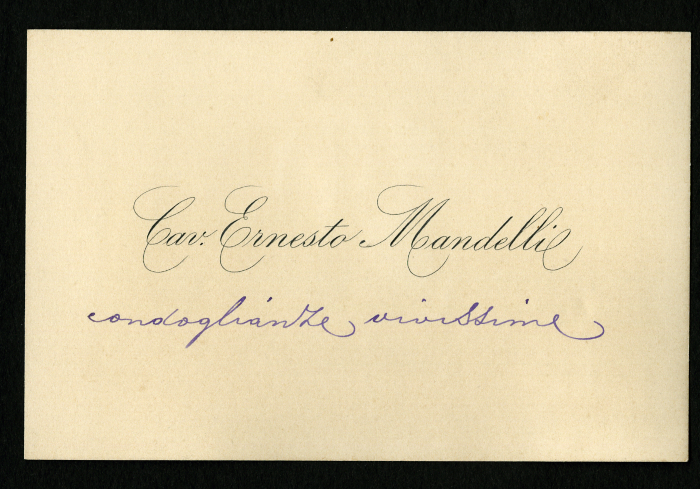 Cav. Ernesto Mandelli
condoglianze vivissime